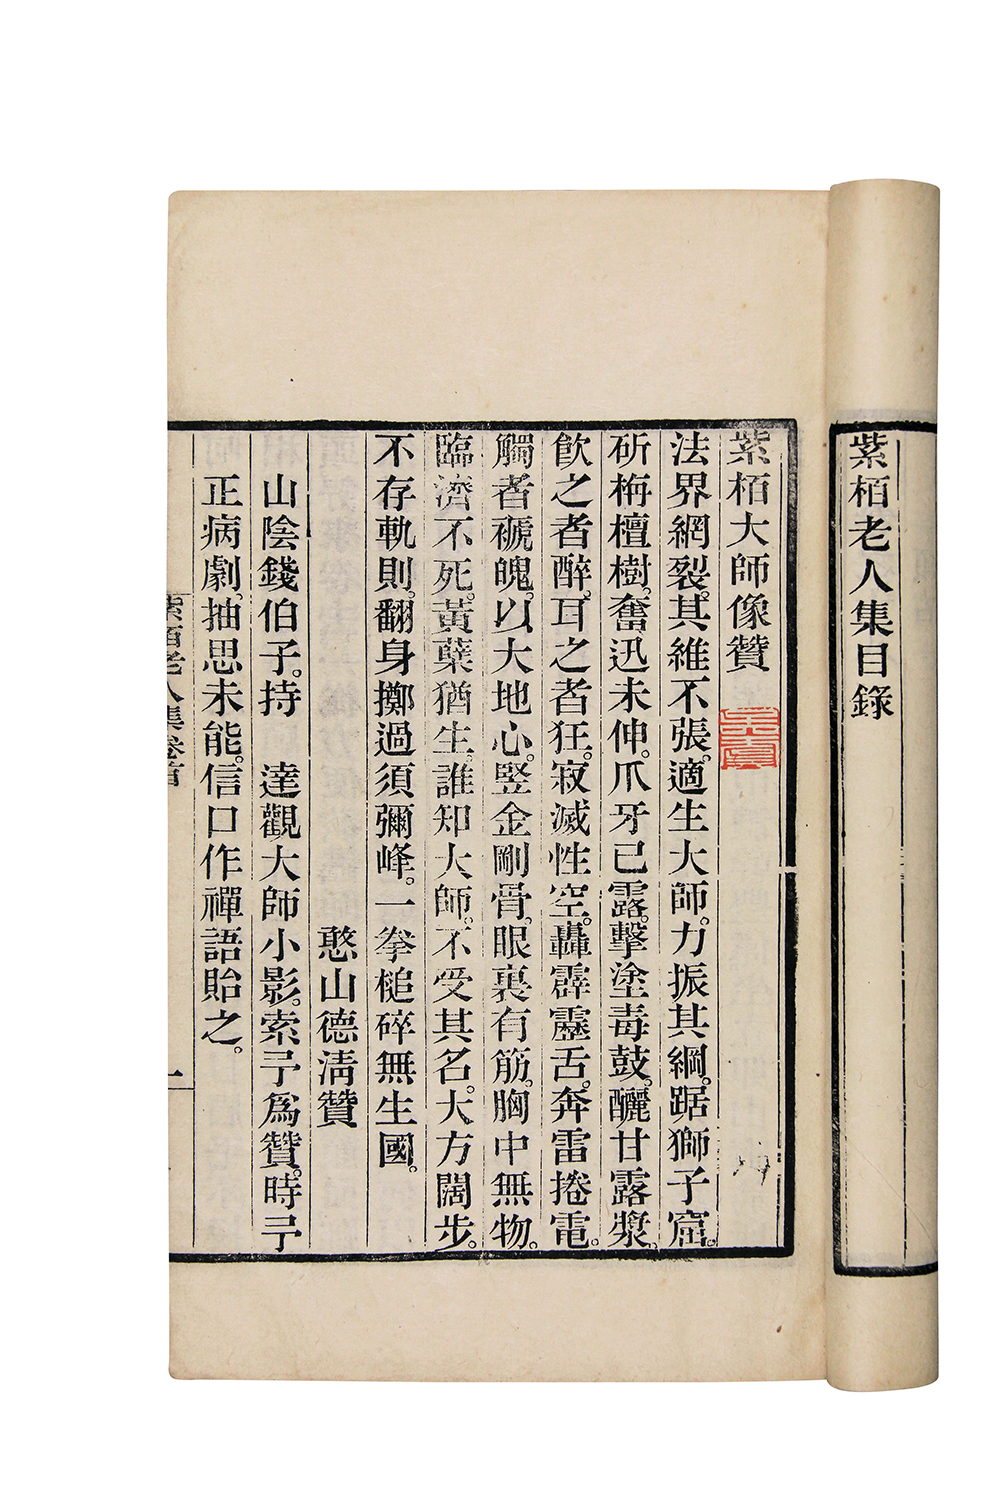 紫栢老人集目錄
紫栢大師像贊
法界網裂。其維不張。適生大師。力振其綱。踞獅子窟。
斫栴檀樹。奮迅未伸。爪牙已露。擊塗毒鼓。釃甘露漿。
飲之者醉。耳之者狂。寂滅性空。轟霹靂舌。奔雷捲電。
觸者褫魄。以大地心。竪金剛骨。眼裏有筋。胸中無物。
臨濟不死。黃蘗猶生。誰知大師。不受其名。大方闊步。
不存軌則。翻身擲過須彌峰。一拳槌碎無生國。
憨山德淸贊
山陰錢伯子。持　達觀大師小影。索予爲贊。時予
正病劇。抽思未能。信口作禪語貽之。
紫栢老人集卷首
一